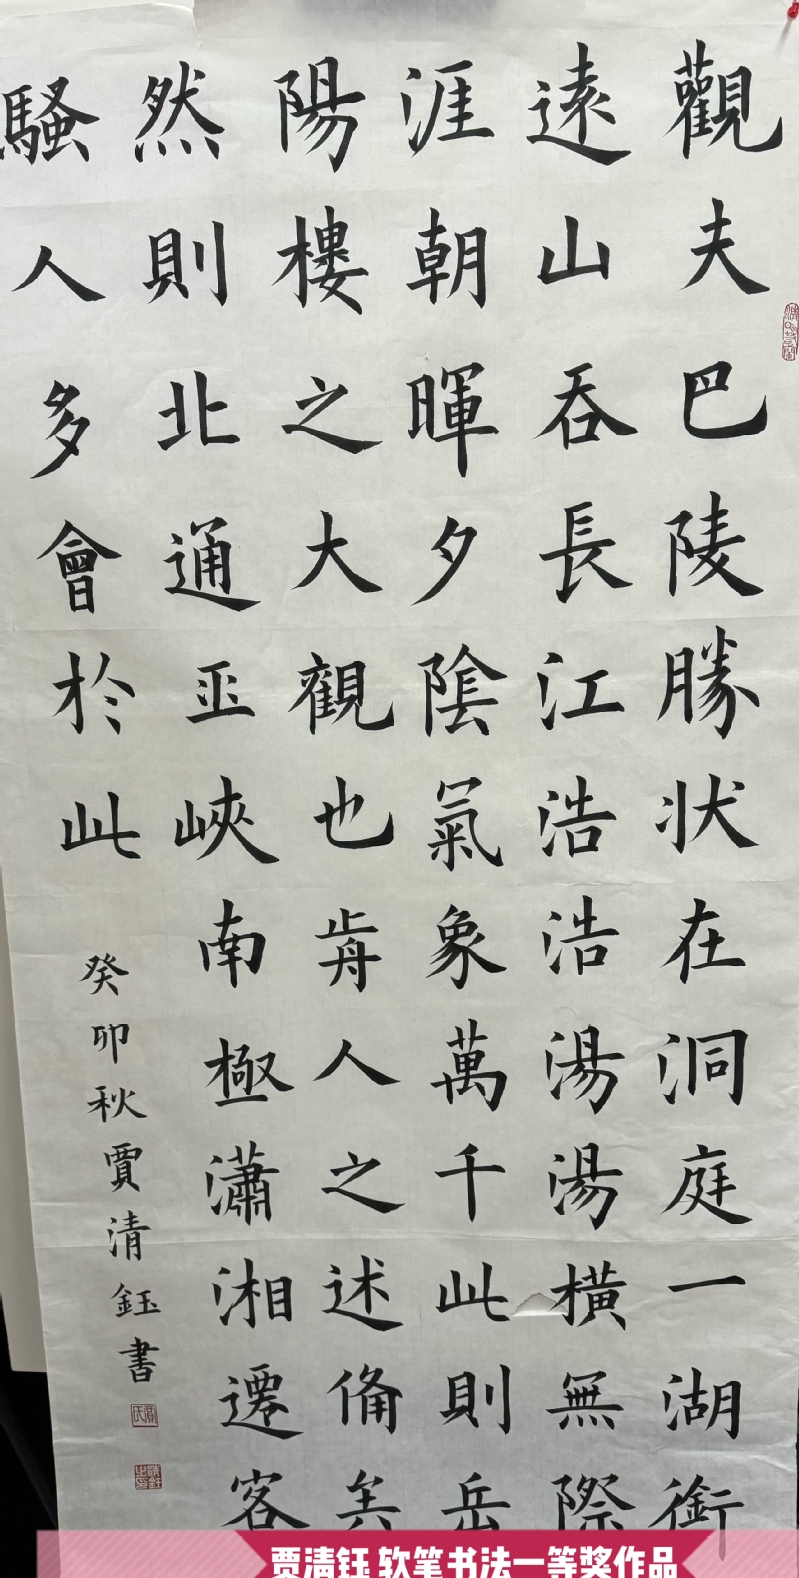 觀夫巴陵勝状在洞庭一湖銜
遠山吞長江浩浩湯湯橫無際
涯朝暉夕陰氣象萬千此則岳
陽樓之大觀也歬人之述俻矣
然則北通巫峽南極瀟湘遷客
騷人多會於此
癸卯秋賈清鈺書
贾清钰 软笔书法一等奖作品